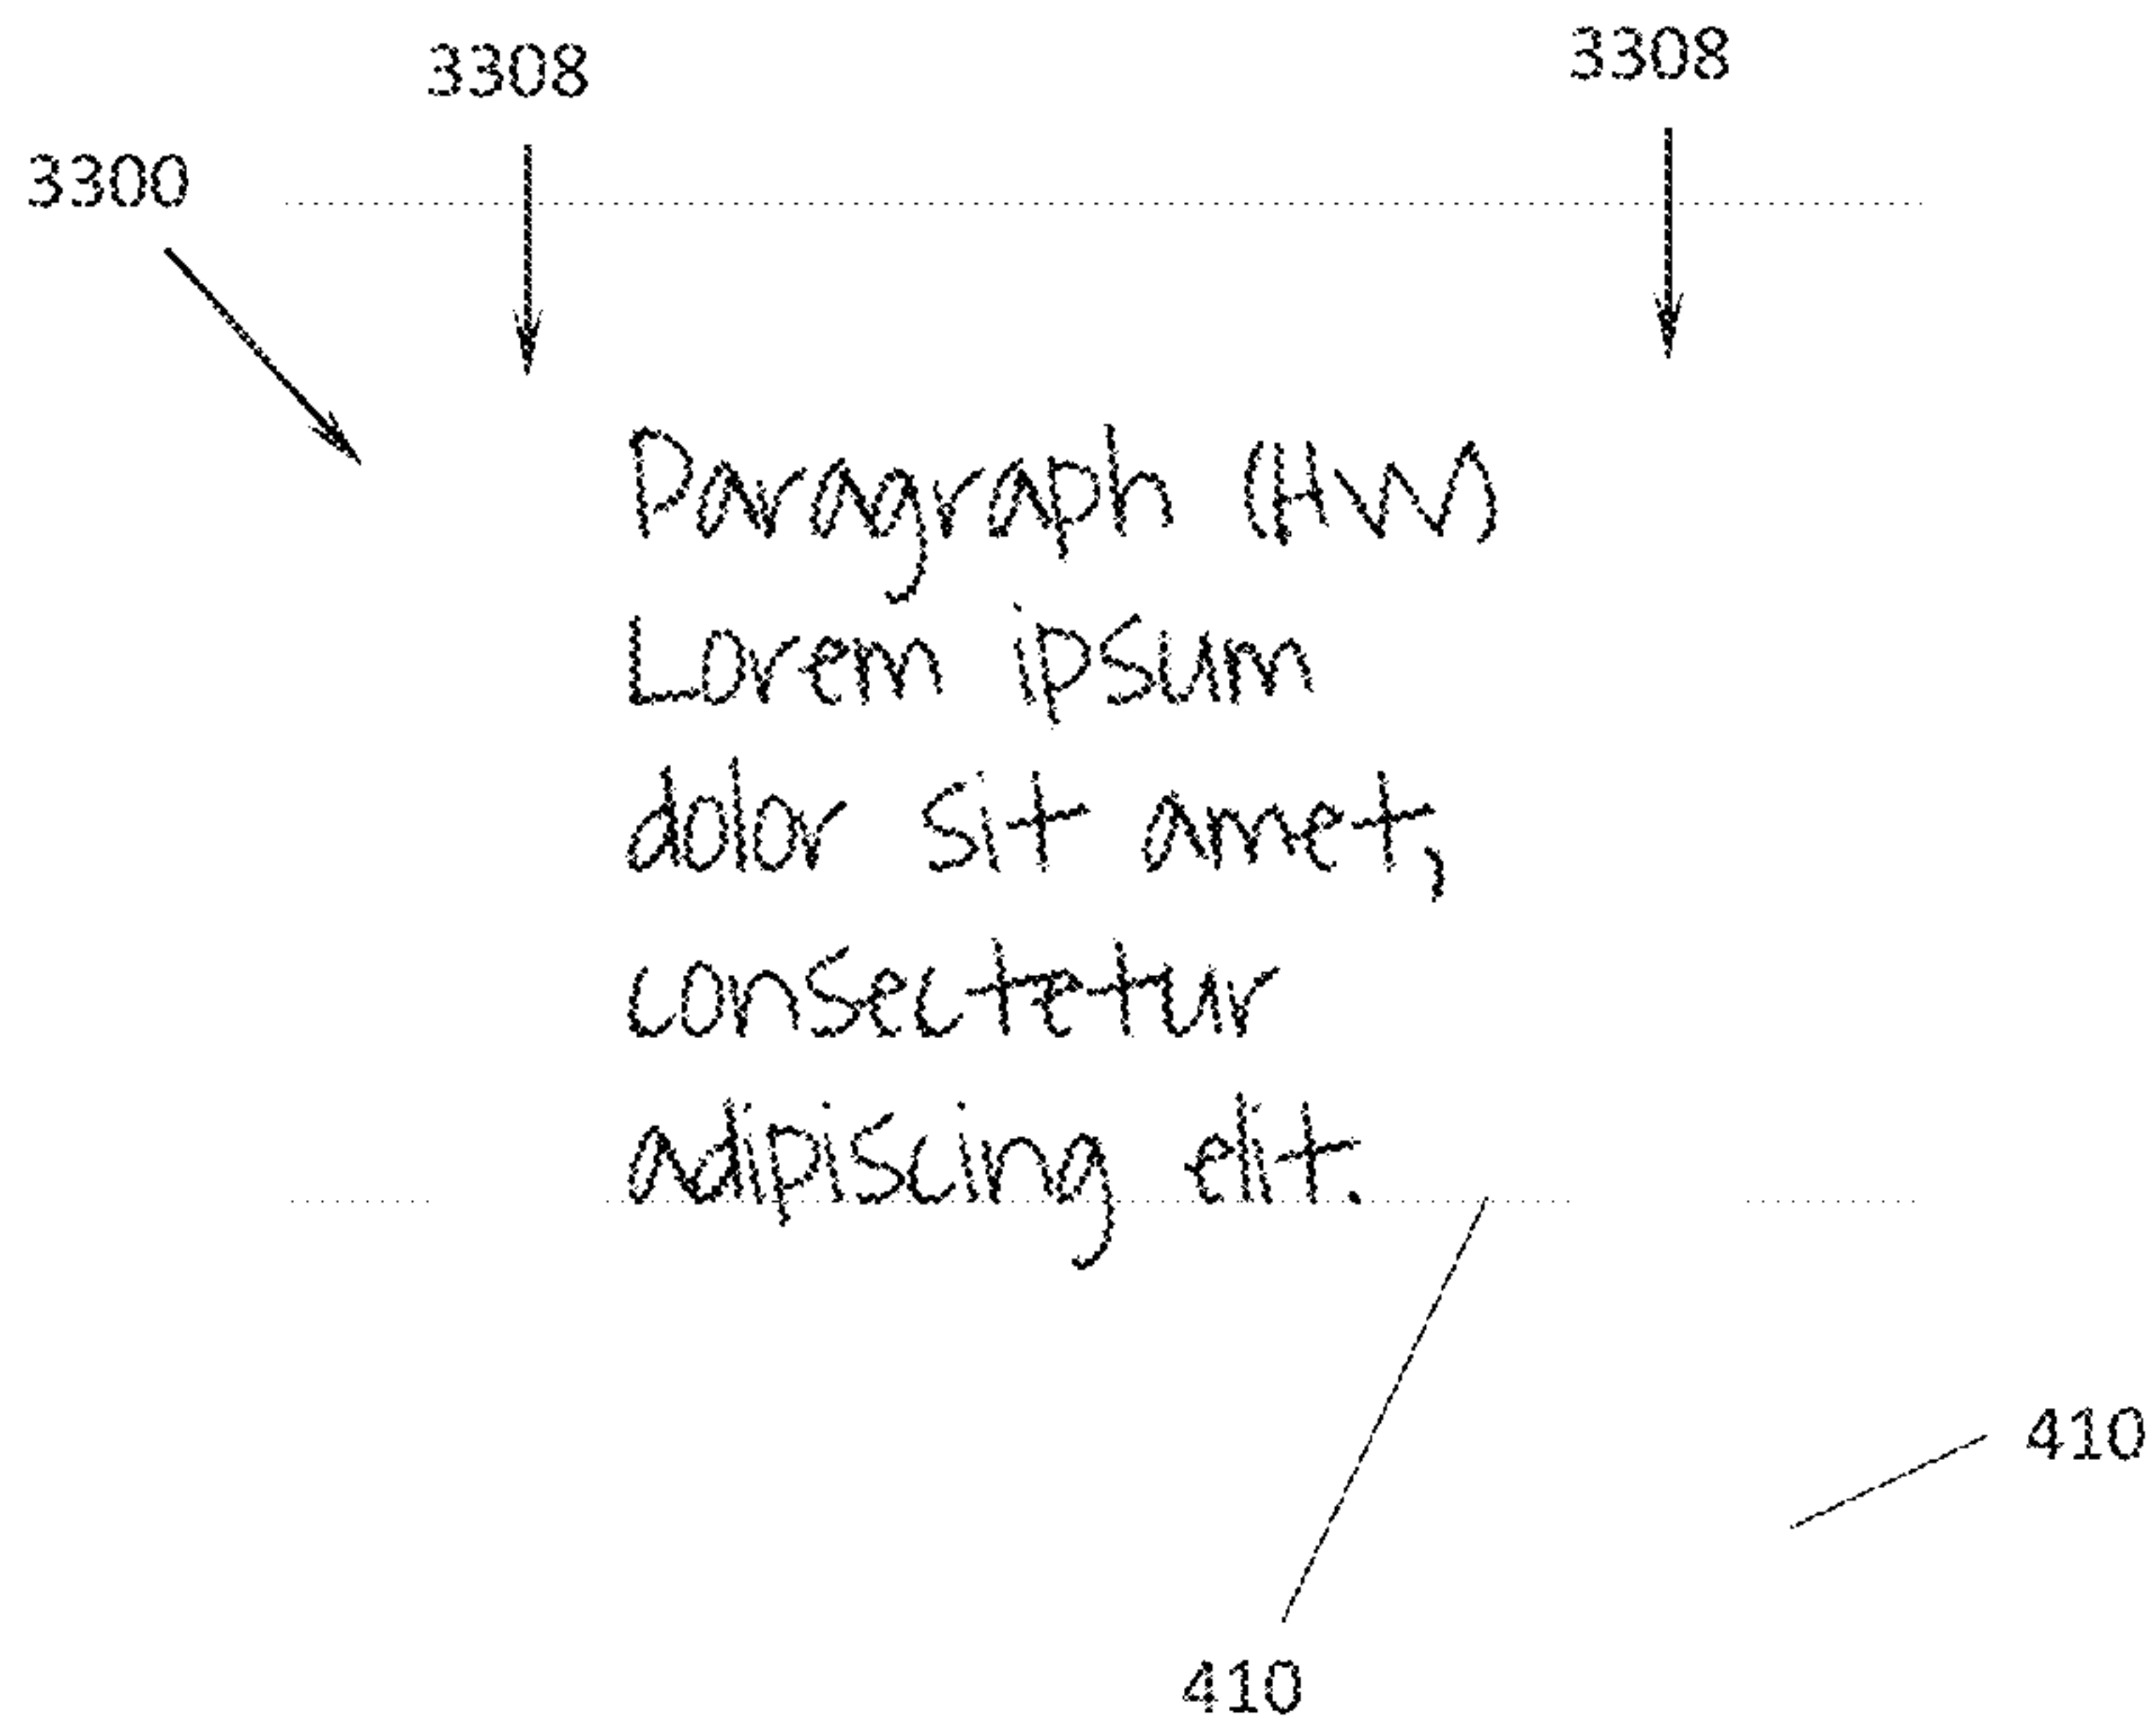 3308
3308
3300
Paragraph (HW)
Lorem ipsum
dolor sit amet,
consectetur
adipiscing elit.
410
410